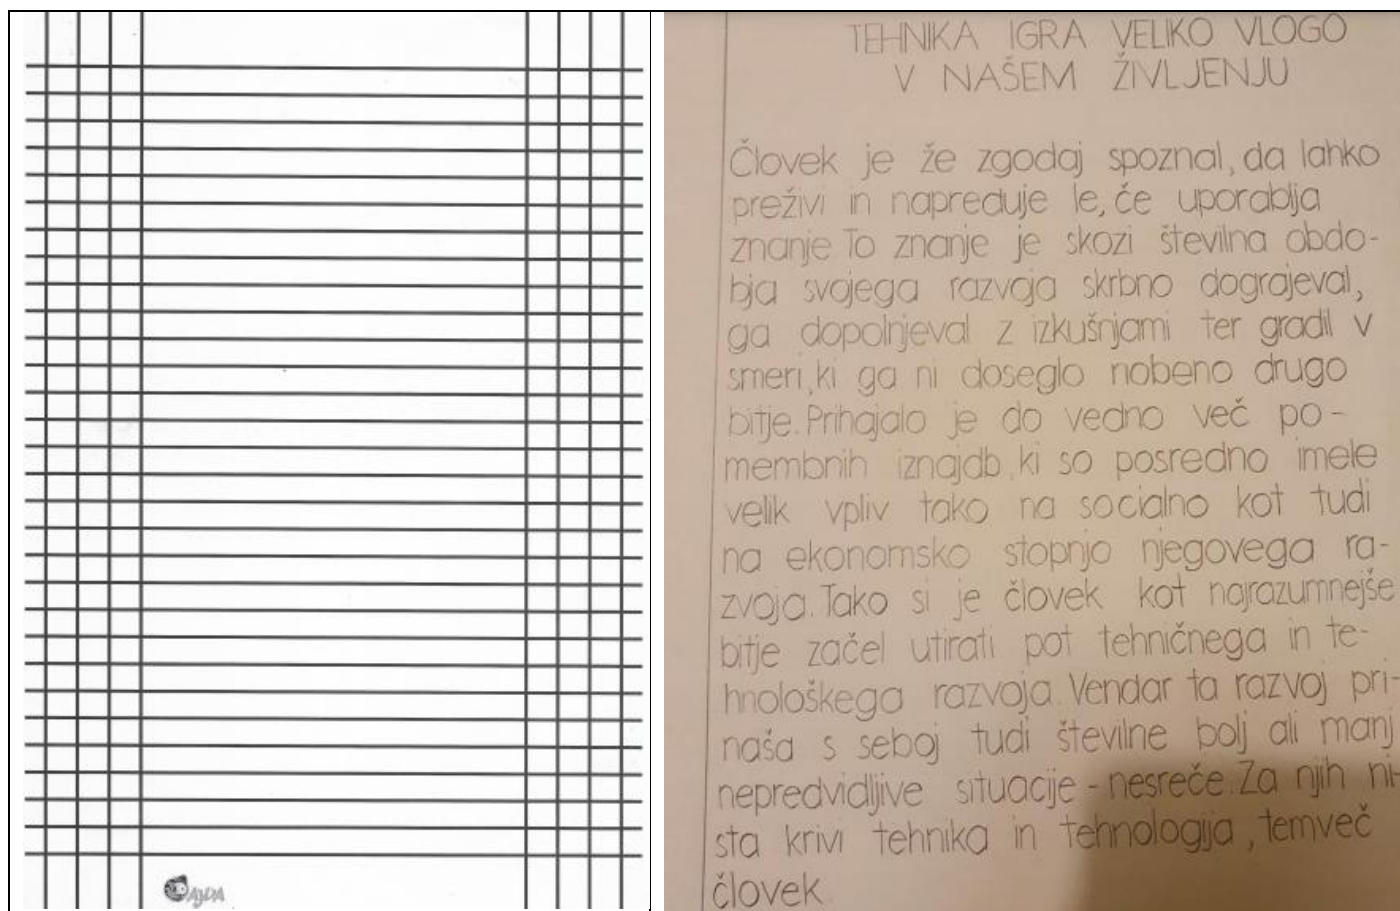 AJDA
TEHNIKA IGRA VELIKO VLOGO
V NAŠEM ŽIVLJENJU
Človek je že zgodaj spoznal, da lahko
preživi in napreduje le, če uporablja
znanje. To znanje je skozi številna obdo-
bja svojega razvoja skrbno dograjeval,
ga dopolnjeval z izkušnjami ter gradil v
smeri, ki ga ni doseglo nobeno drugo
bitje. Prihajalo je do vedno več po-
membnih iznajdb, ki so posredno imele
velik vpliv tako na socialno kot tudi
na ekonomsko stopnjo njegovega ra-
zvoja. Tako si je človek kot najrazumnejše
bitje začel utirati pot tehničnega in te-
hnološkega razvoja. Vendar ta razvoj pri-
naša s seboj tudi številne bolj ali manj
nepredvidljive situacije - nesreče. Za njih ni-
sta krivi tehnika in tehnologija, temveč
človek.